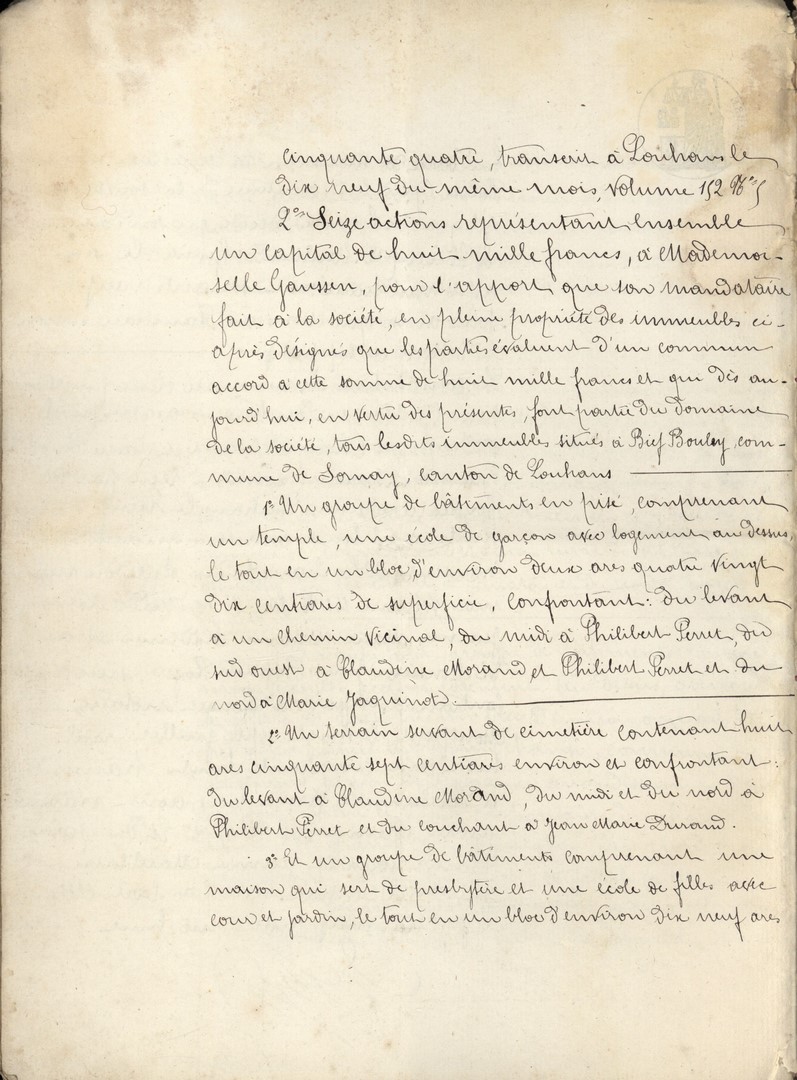 cinquante quatre, transcrit à Louhans le
dix neuf du même mois, volume 152 N° 5
2° Seize actions représentant ensemble
un capital de huit mille francs, à Mademoi-
selle Gaussen, pour l'apport que son mandataire
fait à la société, en pleine propriété des immeubles ci-
après désignés que les parties évaluent d'un commun
accord à cette somme de huit mille francs et qui dès au-
jourd'hui, en vertu des présentes, font partie du domaine
de la société, tous lesdits immeubles situés à Bief Bouley, com-
mune de Sornay, canton de Louhans
1° Un groupe de bâtiments en pisé, comprenant
un temple, une école de garçon avec logement au dessus,
le tout en un bloc d'environ deux ares quatre vingt
dix centiares de superficie, confrontant: du levant
à un chemin vicinal, du midi à Philibert Perret, du
sud ouest à Claudine Morand, et Philibert Perret et du
nord à Marie Jaquinot.
2° Un terrain servant de cimetière contenant huit
ares cinquante sept centiares environ et confrontant:
du levant à Claudine Morand, du midi et du nord à
Philibert Perret et du couchant à Jean Marie Durand.
3° Et un groupe de bâtiments comprenant une
maison qui sert de presbytère et une école de filles avec
cour et jardin, le tout en un bloc d'environ dix neuf ares